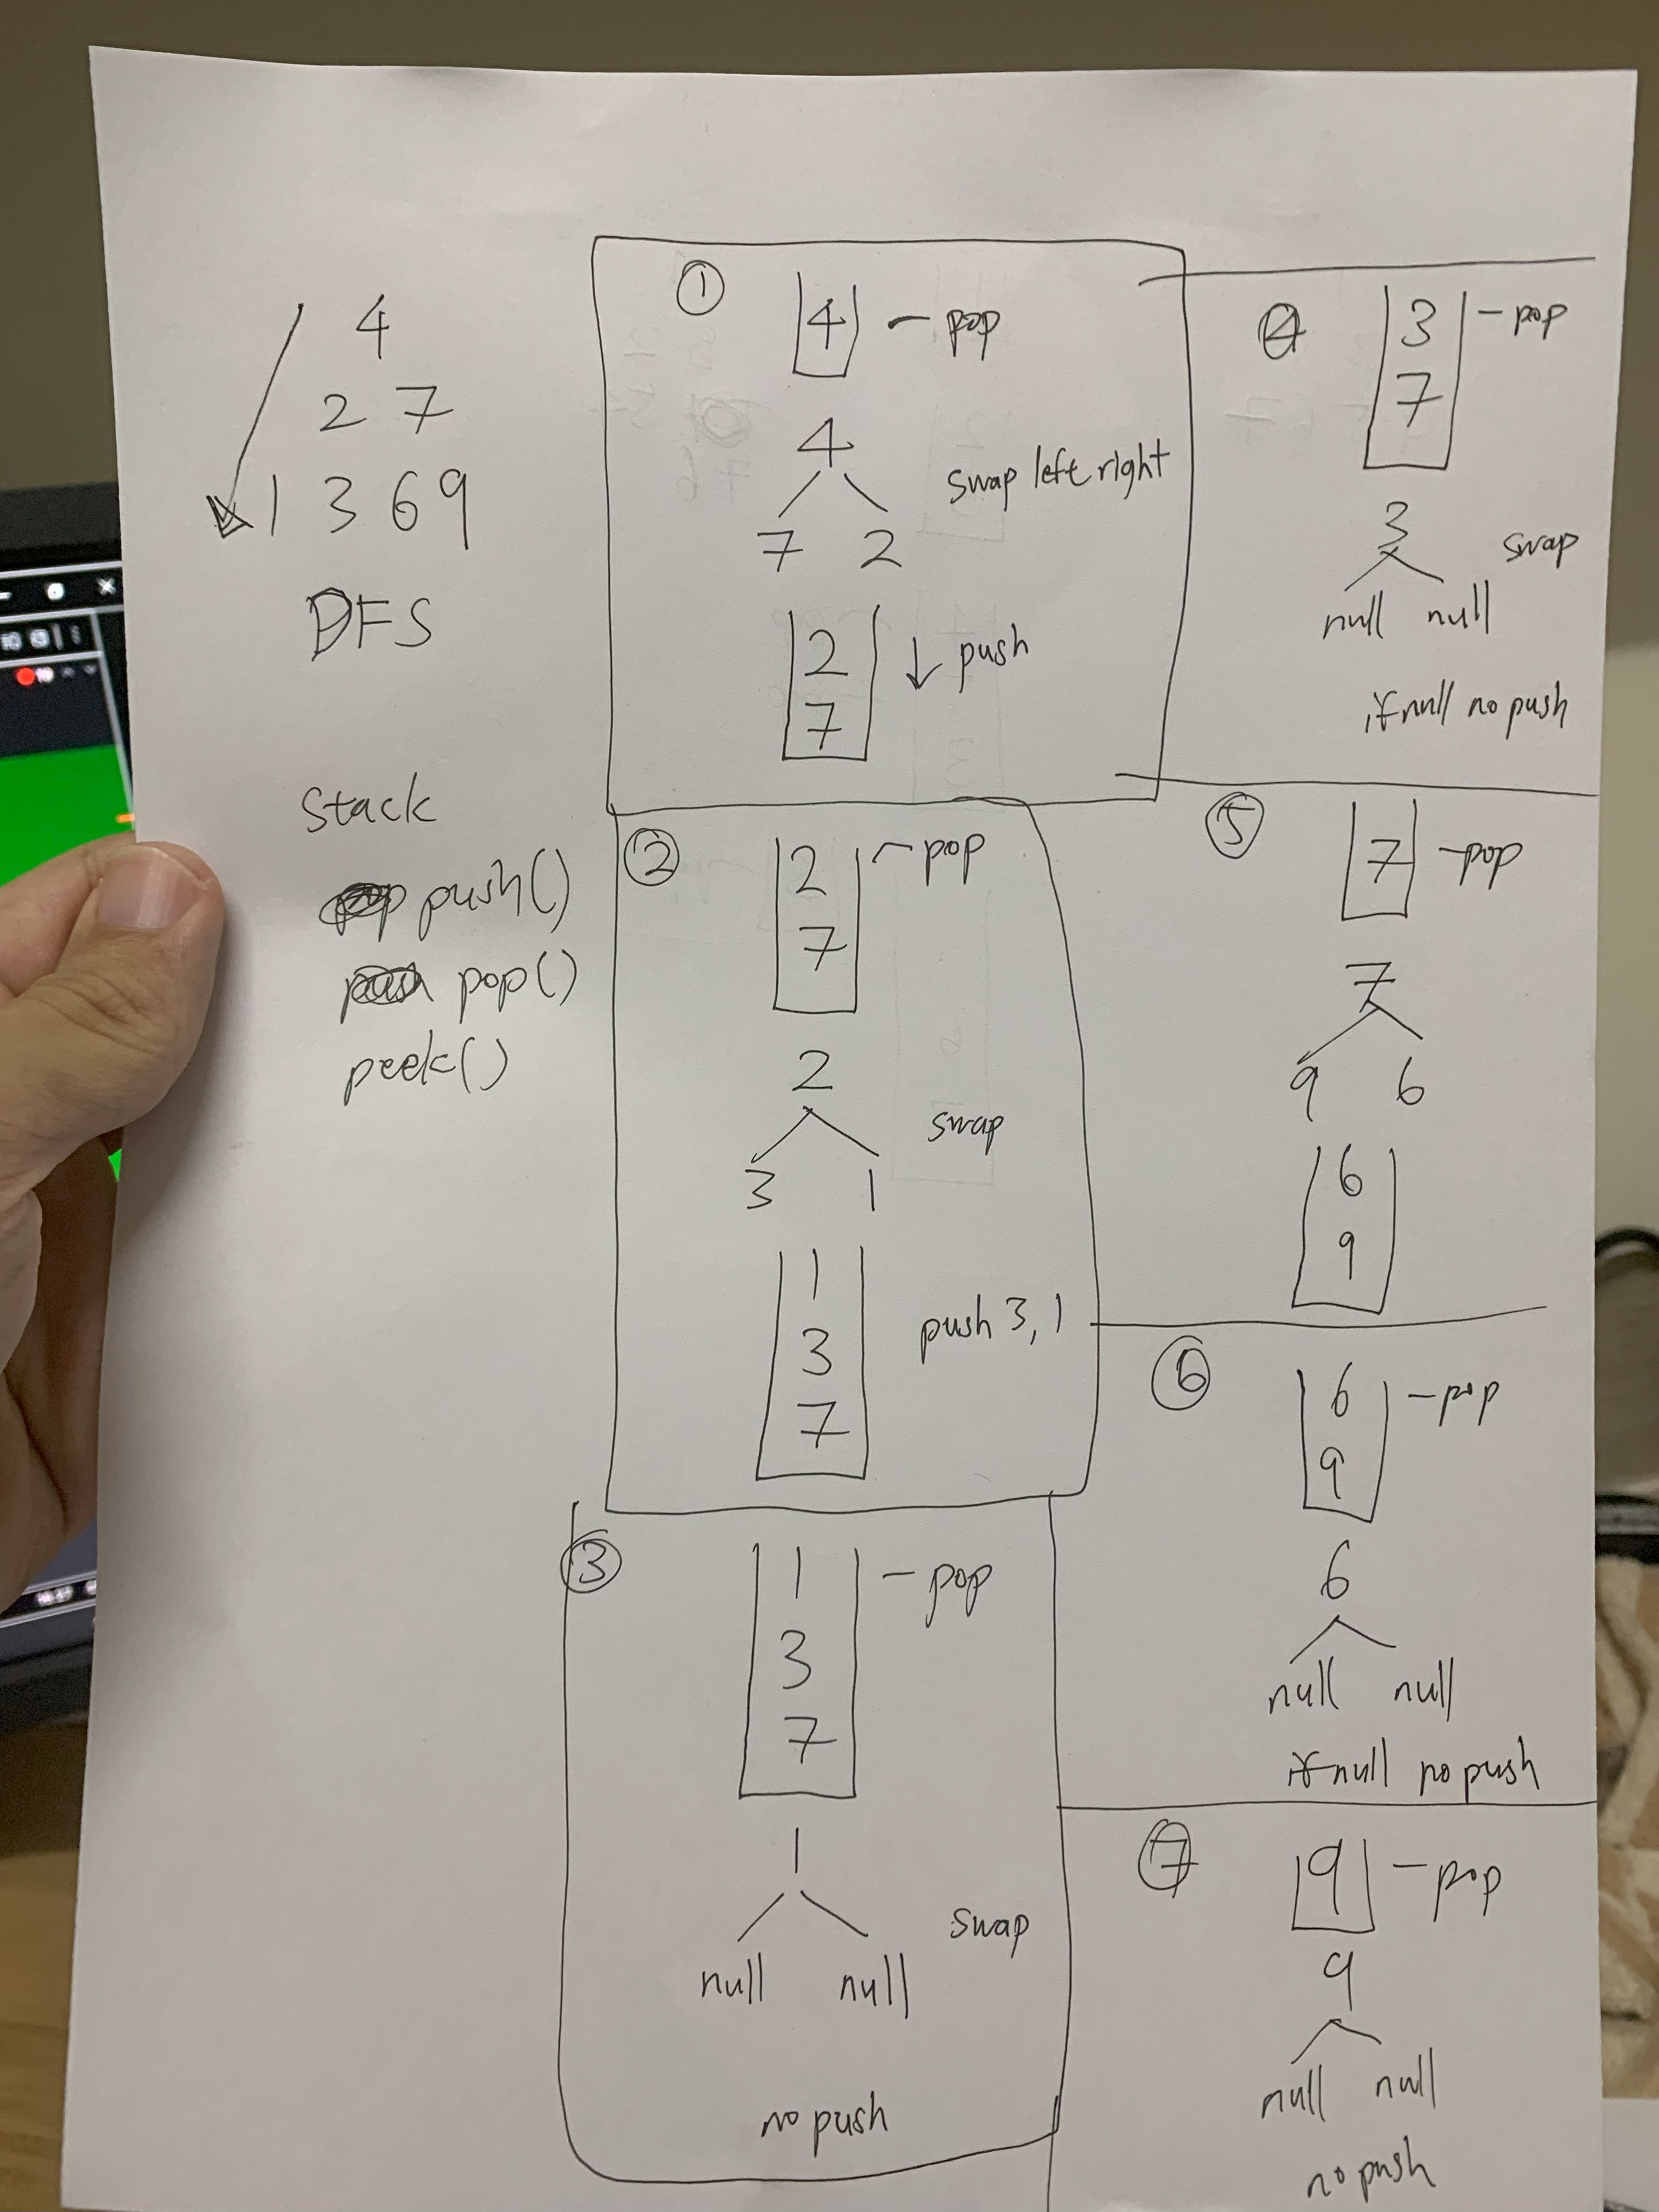 4
2 7
1 3 6 9
DFS
Stack
push()
pop()
peek()
①
4 – pop
4
swap left right
7 2
2 ↓ push
7
②
2 – pop
7
2
swap
3 1
1
3 push 3, 1
7
③
1 – pop
3
7
1
swap
null null
no push
④
3 – pop
7
3
swap
null null
if null no push
⑤
7 – pop
7
9 6
6
9
⑥
6 – pop
9
6
null null
if null no push
⑦
9 – pop
9
null null
no push